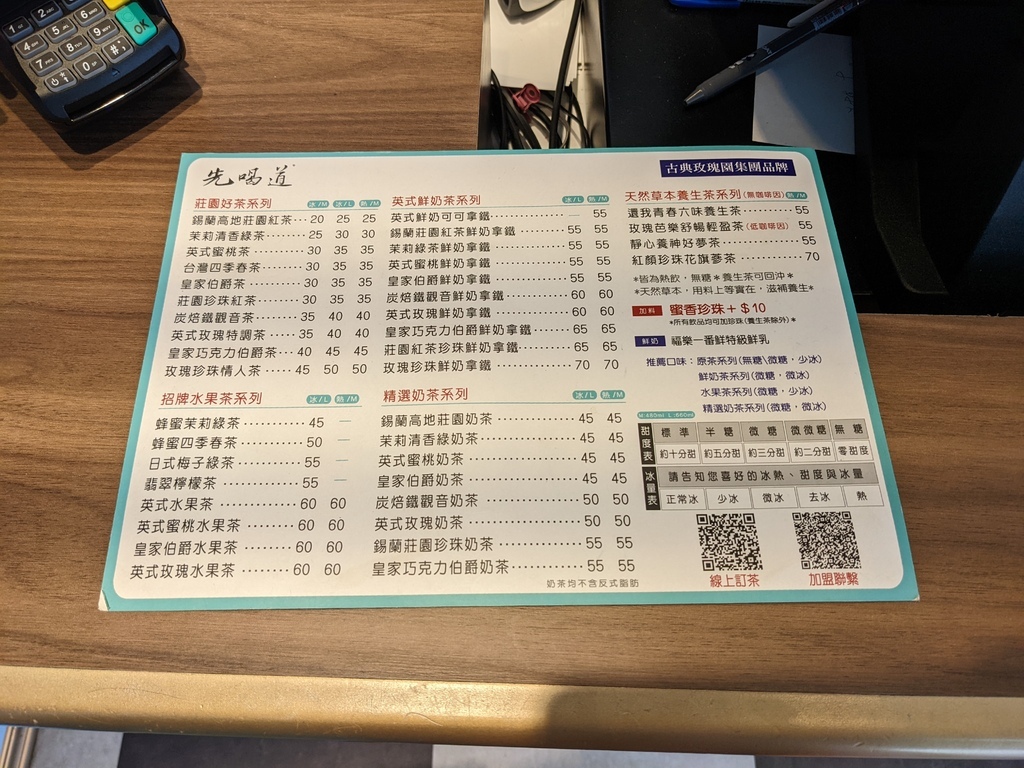 先喝道
古典玫瑰園集團品牌
莊園好茶系列 冰/M 冰/L 熱/M
錫蘭高地莊園紅茶 20 25 25
茉莉清香綠茶 25 30 30
英式蜜桃茶 30 35 35
台灣四季春茶 30 35 35
皇家伯爵茶 30 35 35
莊園珍珠紅茶 30 35 35
炭焙鐵觀音茶 35 40 40
英式玫瑰特調茶 35 40 40
皇家巧克力伯爵茶 40 45 45
玫瑰珍珠情人茶 45 50 50
招牌水果茶系列 冰/L 熱/M
蜂蜜茉莉綠茶 45 —
蜂蜜四季春茶 50 —
日式梅子綠茶 55 —
翡翠檸檬茶 55 —
英式水果茶 60 60
英式蜜桃水果茶 60 60
皇家伯爵水果茶 60 60
英式玫瑰水果茶 60 60
英式鮮奶茶系列 冰/L 熱/M
英式鮮奶可可拿鐵 — 55
錫蘭莊園紅茶鮮奶拿鐵 55 55
茉莉綠茶鮮奶拿鐵 55 55
英式蜜桃鮮奶拿鐵 55 55
皇家伯爵鮮奶拿鐵 55 55
炭焙鐵觀音鮮奶拿鐵 60 60
英式玫瑰鮮奶拿鐵 60 60
皇家巧克力伯爵鮮奶拿鐵 65 65
莊園紅茶珍珠鮮奶拿鐵 65 65
玫瑰珍珠鮮奶拿鐵 70 70
精選奶茶系列 冰/L 熱/M
錫蘭高地莊園奶茶 45 45
茉莉清香綠奶茶 45 45
英式蜜桃奶茶 45 45
皇家伯爵奶茶 45 45
炭焙鐵觀音奶茶 50 50
英式玫瑰奶茶 50 50
錫蘭莊園珍珠奶茶 55 55
皇家巧克力伯爵奶茶 55 55
奶茶均不含反式脂肪
天然草本養生茶系列(無咖啡因) 熱/M
還我青春六味養生茶 55
玫瑰芭樂舒暢輕盈茶(低咖啡因) 55
靜心養神好夢茶 55
紅顏珍珠花旗蔘茶 70
*皆為熱飲，無糖*養生茶可回沖*
*天然草本，用料上等實在，滋補養生*
加料 蜜香珍珠+$10
*所有飲品均可加珍珠(養生茶除外)*
鮮奶 福樂一番鮮特級鮮乳
推薦口味：原茶系列(無糖\微糖，少冰)
鮮奶茶系列(微糖，微冰)
水果茶系列(微糖，少冰)
精選奶茶系列(微糖，微冰)
M:480ml L:660ml
甜度表 標準 半糖 微糖 微微糖 無糖
約十分甜 約五分甜 約三分甜 約二分甜 零甜度
冰量表 請告知您喜好的冰熱、甜度與冰量
正常冰 少冰 微冰 去冰 熱
線上訂茶
加盟聯繫
1 2 OK
4 5 6
7 8 9
0 #